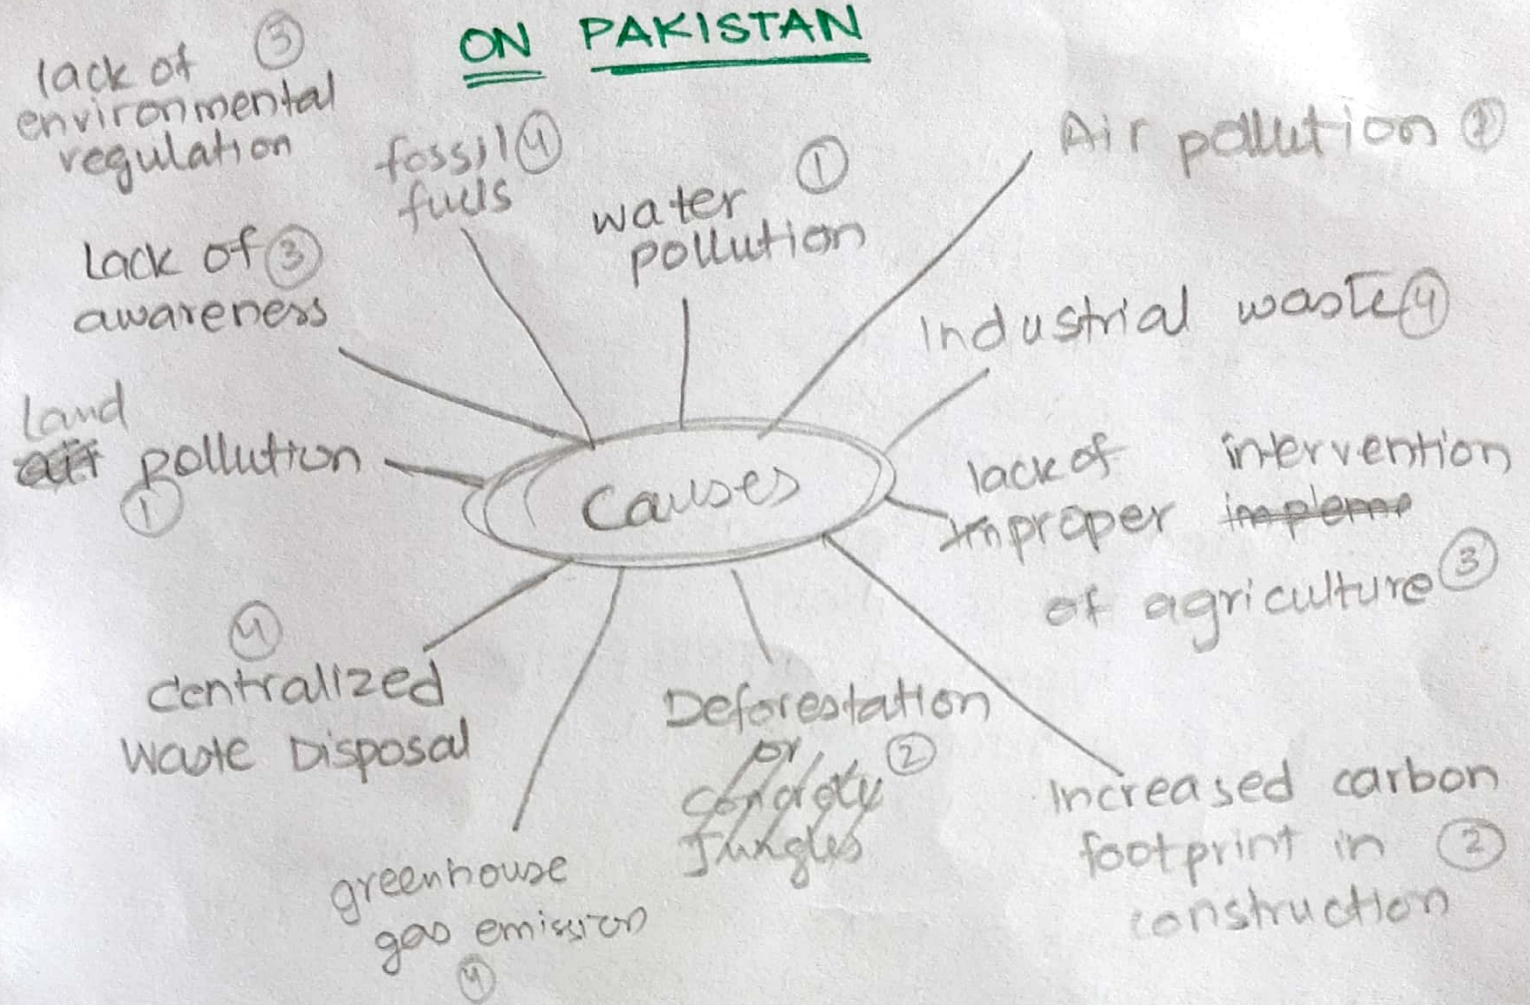 ON PAKISTAN
lack of ③
environmental
regulation
fossil ④
fuels
water ①
pollution
Air pollution ①
Lack of ③
awareness
Industrial waste ④
Land
air pollution
①
Causes
lack of intervention
improper impleme
of agriculture ③
④
centralized
Waste Disposal
Deforestation
or ②
Jungles
Increased carbon
footprint in ②
construction
greenhouse
gas emission
④